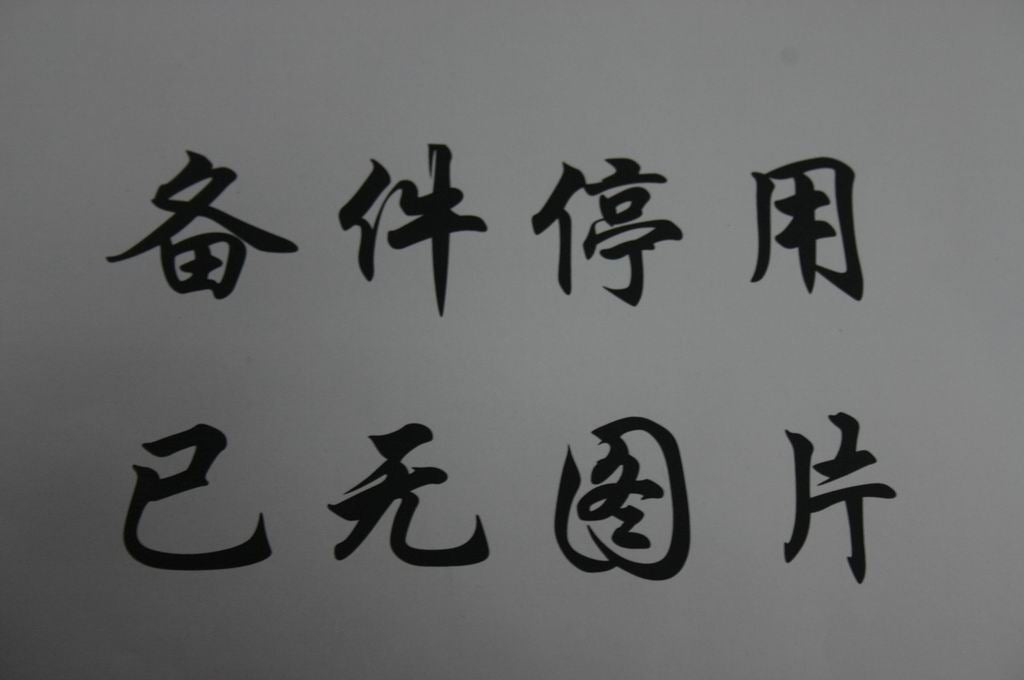 备件停用
已无图片